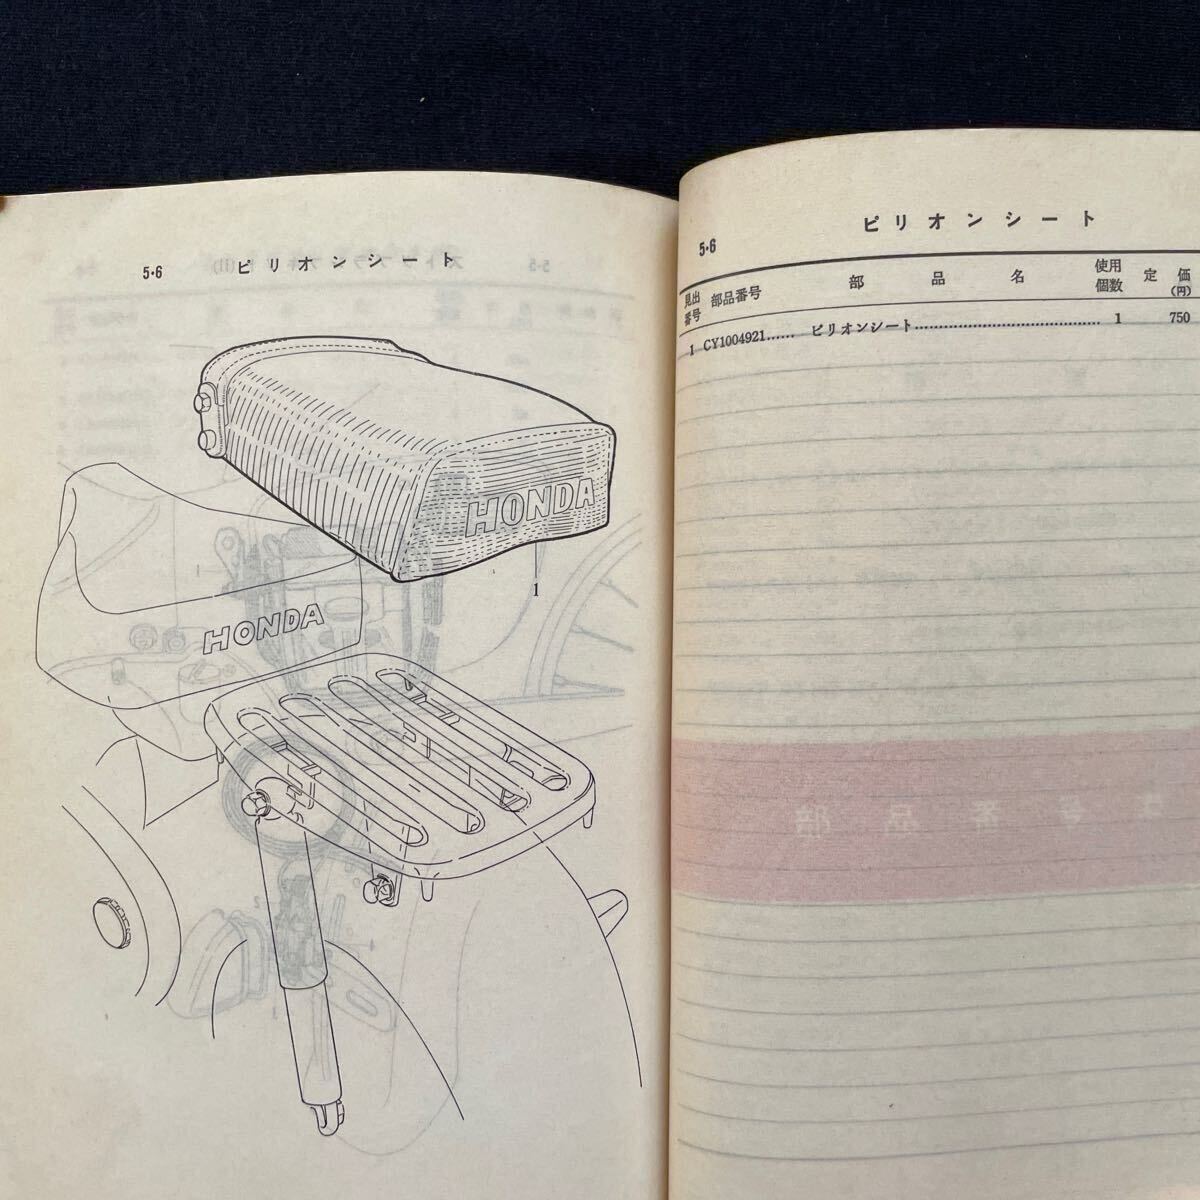 5・6 ピリオンシート
HONDA
1
HONDA
5・6 ピリオンシート
見出番号 部品番号 部品名 使用個数 定価(円)
1 CY1004921…… ピリオンシート…………………………………… 1 750